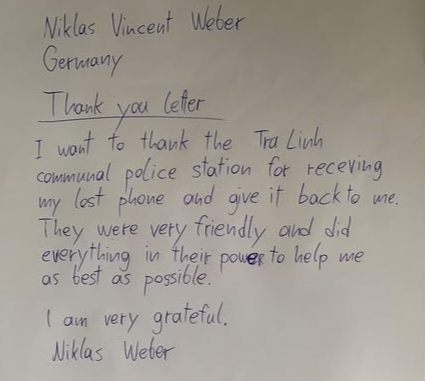 Niklas Vincent Weber
Germany
Thank you letter
I want to thank the Tra Linh
communal police station for receving
my lost phone and give it back to me.
They were very friendly and did
everything in their power to help me
as best as possible.
I am very grateful.
Niklas Weber